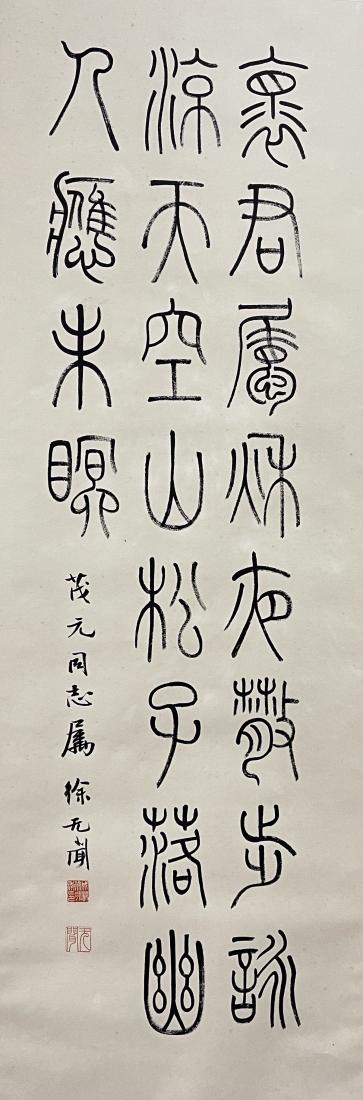 褱君屬秋夜散步詠
涼天空山松子落幽
人應未瞑
茂元同志属 徐无聞